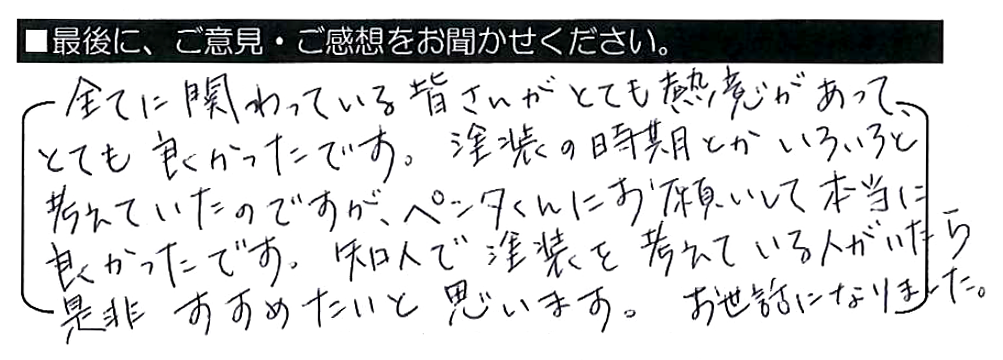 ■最後に、ご意見・ご感想をお聞かせください。
全てに関わっている皆さんがとても熱意があって、
とても良かったです。塗装の時期とかいろいろと
考えていたのですが、ペンタくんにお願いして本当に
良かったです。知人で塗装を考えている人がいたら
是非すすめたいと思います。お世話になりました。